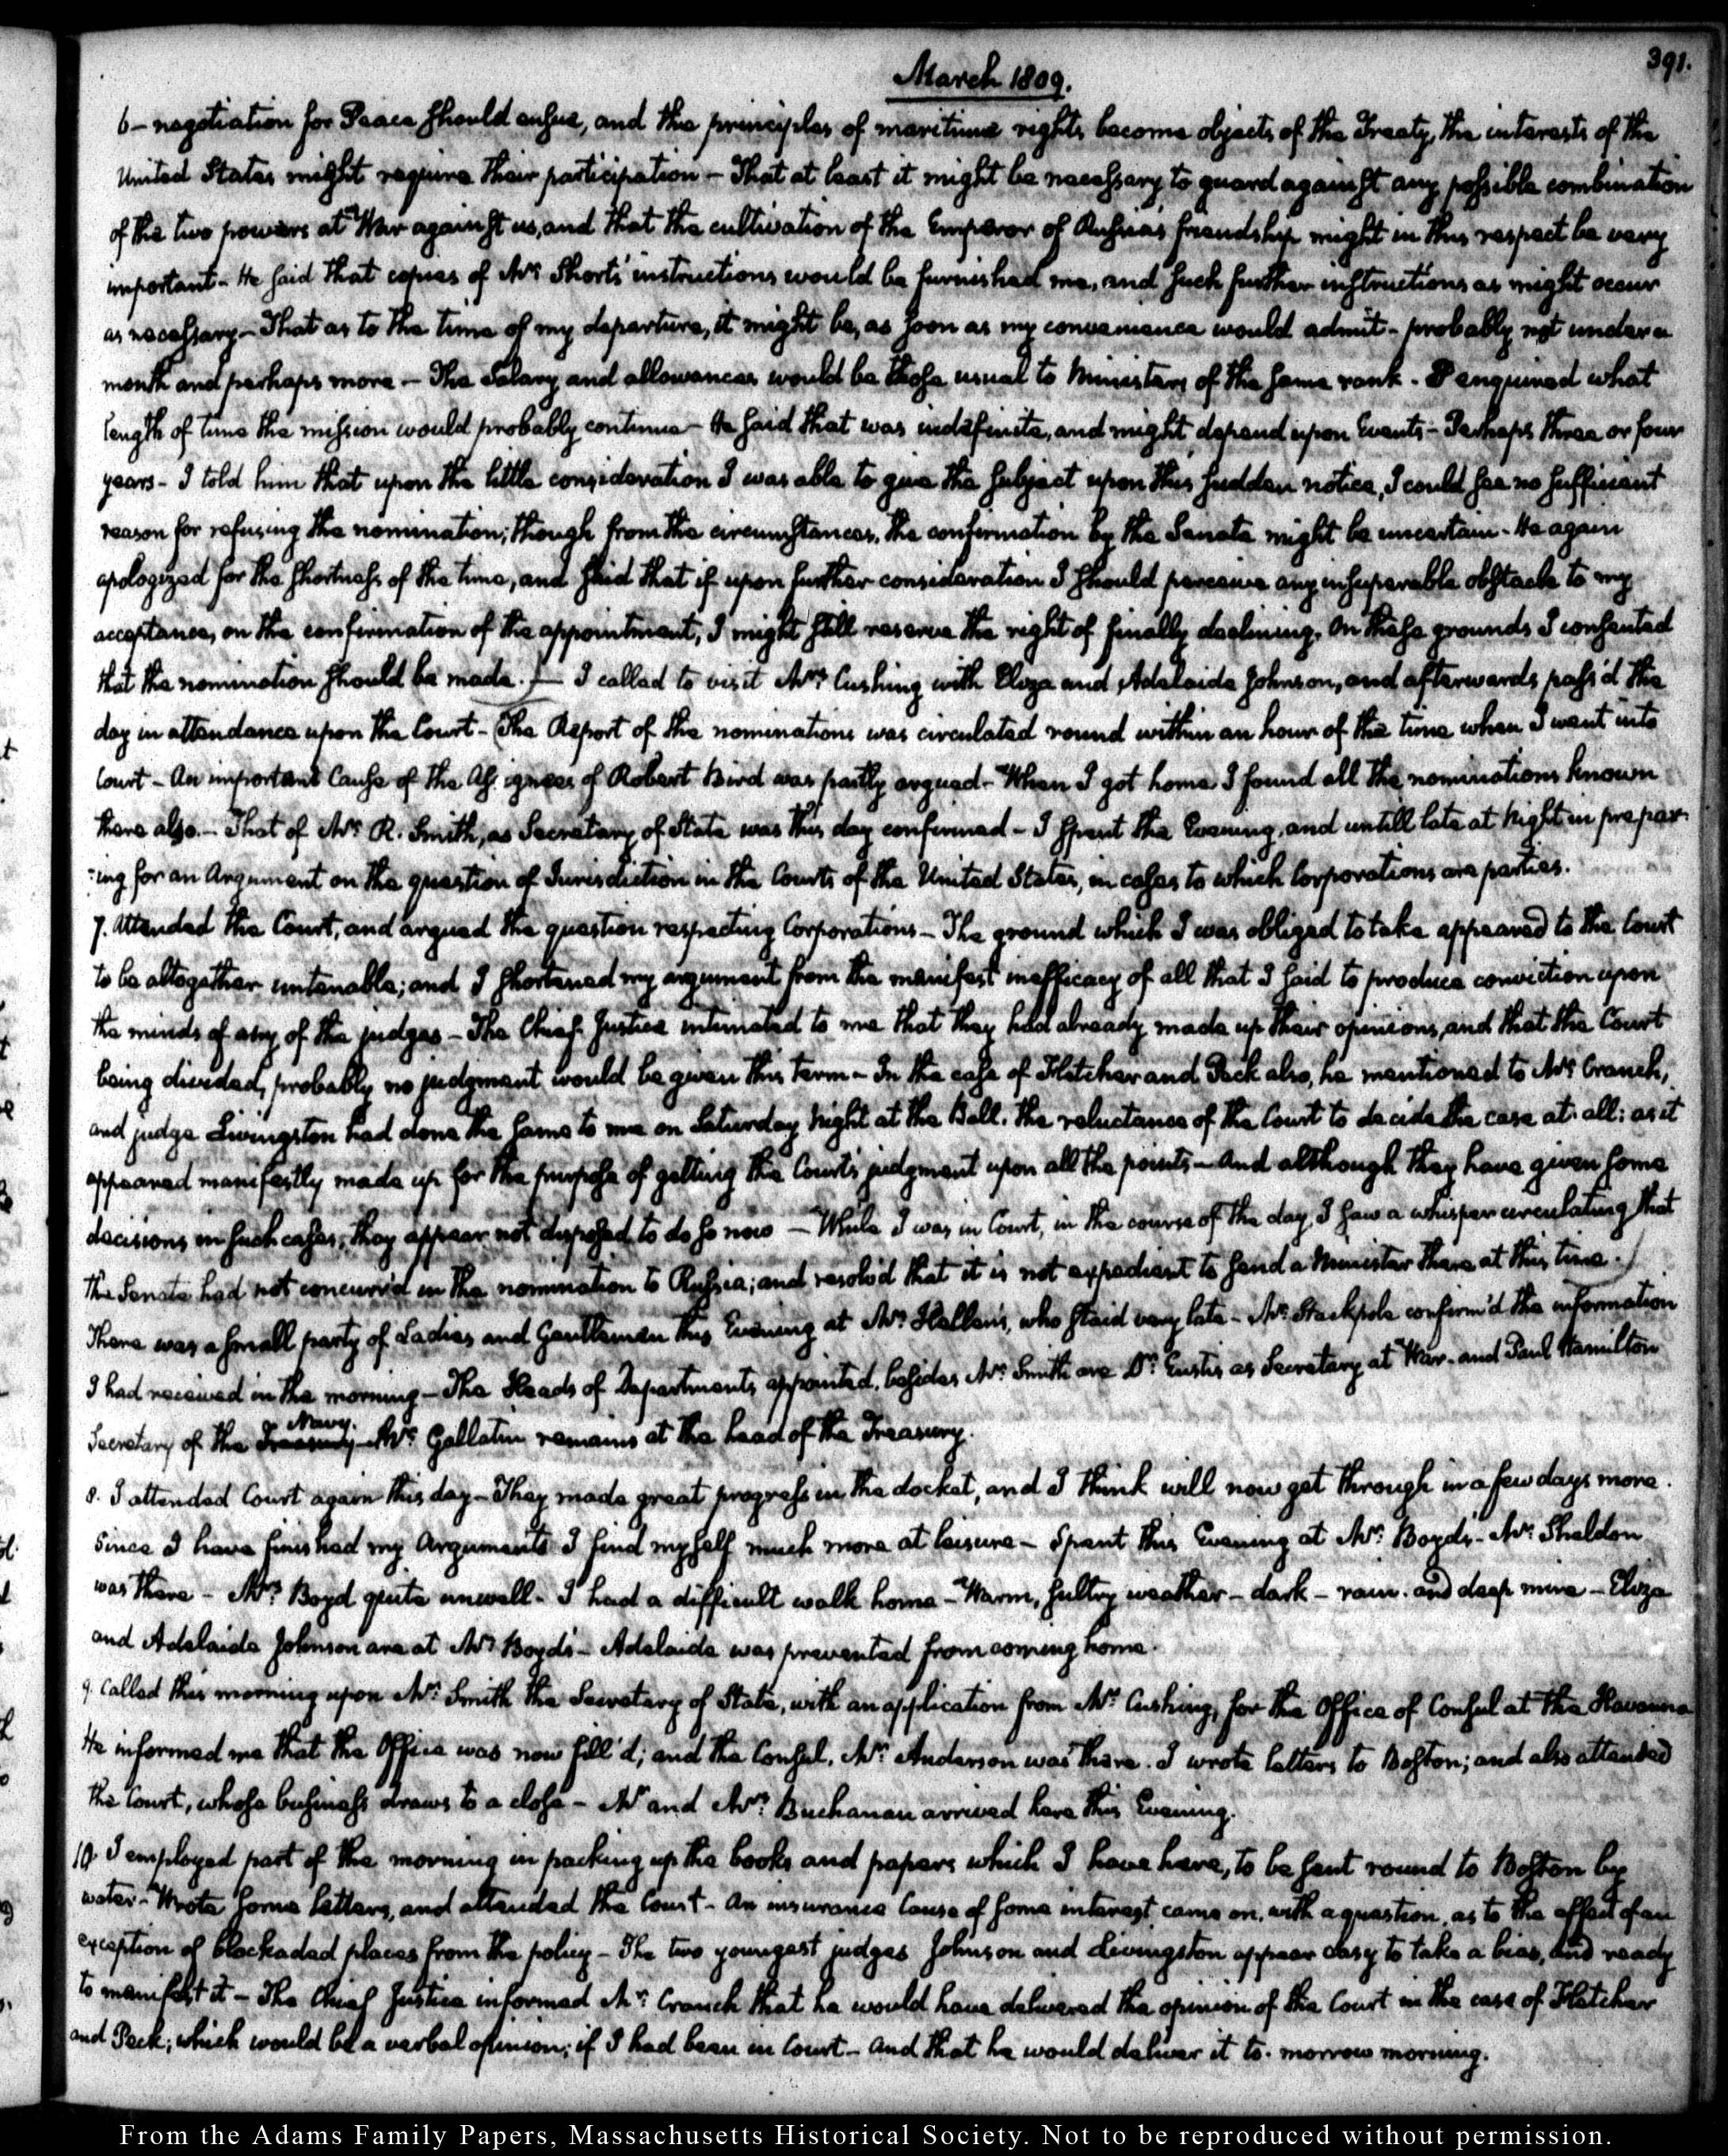 391.
March 1809.
6 – negotiation for Peace should ensue, and the principles of maritime rights become objects of the Treaty, the interests of the
United States might require their participation – That at least it might be necessary to guard against any possible combination
of the two powers at War against us, and that the cultivation of the Emperor of Russia's friendship might in this respect be very
important – He said that copies of Mr. Short's instructions would be furnished me, and such further instructions as might occur
as necessary – That as to the time of my departure, it might be, as soon as my convenience would admit – probably not under a
month and perhaps more – The Salary and allowances would be those usual to Ministers of the same rank – I enquired what
length of time the mission would probably continue – He said that was indefinite, and might depend upon Events – Perhaps three or four
years – I told him that upon the little consideration I was able to give the subject upon this sudden notice, I could see no sufficient
reason for refusing the nomination; though from the circumstances, the confirmation by the Senate might be uncertain – He again
apologized for the shortness of the time, and said that if upon further consideration I should perceive any insuperable obstacle to my
acceptance, on the confirmation of the appointment, I might still reserve the right of finally declining. On these grounds I consented
that the nomination should be made. – I called to visit Mrs. Cushing with Eliza and Adelaide Johnson, and afterwards pass'd the
day in attendance upon the Court – (The Report of the nominations was circulated round within an hour of the time when I went into
Court – An important Cause of the Assignees of Robert Bird was partly argued – When I got home I found all the nominations known
there also. – That of Mr. R. Smith, as Secretary of State was this day confirmed – I spent the Evening, and untill late at Night in prepar-
:ing for an Argument on the question of Jurisdiction in the Courts of the United States, in cases to which Corporations are parties.
7. Attended the Court, and argued the question respecting Corporations – The ground which I was obliged to take appeared to the Court
to be altogether untenable; and I shortened my argument from the manifest inefficacy of all that I said to produce conviction upon
the minds of any of the judges – The Chief Justice intimated to me that they had already made up their opinions, and that the Court
being divided, probably no judgment would be given this term – In the case of Fletcher and Peck also, he mentioned to Mr. Cranch,
and judge Livingston had done the same to me on Saturday Night at the Ball. the reluctance of the Court to decide the case at all: as it
appeared manifestly made up for the purpose of getting the Court's judgment upon all the points – And although they have given some
decisions in such cases, they appear not disposed to do so now – While I was in Court, in the course of the day, I saw a whisper circulating that
the Senate had not concurr'd in the nomination to Russia; and resolv'd that it is not expedient to send a Minister there at this time.)
There was a small party of Ladies and Gentlemen this Evening at Mr. Hellen's, who staid very late – Mr. Stackpole confirm'd the information
I had received in the morning – The Heads of Departments appointed, besides Mr. Smith are Dr. Eustis as Secretary at War – and Paul Hamilton
Secretary of the Treasury Navy. – Mr. Gallatin remains at the head of the Treasury.
8. I attended Court again this day – They made great progress in the docket, and I think will now get through in a few days more.
Since I have finished my Arguments I find myself much more at leisure – Spent this Evening at Mr. Boyd's – Mr. Sheldon
was there – Mrs. Boyd quite unwell – I had a difficult walk home – Warm, sultry weather – dark – rain – and deep mire – Eliza
and Adelaide Johnson are at Mrs. Boyd's – Adelaide was prevented from coming home.
9. Called this morning upon Mr. Smith the Secretary of State, with an application from Mr. Cushing, for the Office of Consul at the Havanna
He informed me that the Office was now fill'd; and the Consul, Mr. Anderson was there. I wrote letters to Boston; and also attended
the Court, whose business draws to a close – Mr and Mrs. Buchanan arrived here this Evening.
10. I employed part of the morning in packing up the books and papers which I have here, to be sent round to Boston by
water – Wrote some letters, and attended the Court – An insurance Cause of some interest came on, with a question, as to the effect of an
exception of blockaded places from the policy – The two youngest judges Johnson and Livingston appear easy to take a bias, and ready
to manifest it – The Chief Justice informed Mr. Cranch that he would have delivered the opinion of the Court in the case of Fletcher
and Peck; which would be a verbal opinion; if I had been in Court – And that he would deliver it to-morrow morning.
From the Adams Family Papers, Massachusetts Historical Society. Not to be reproduced without permission.